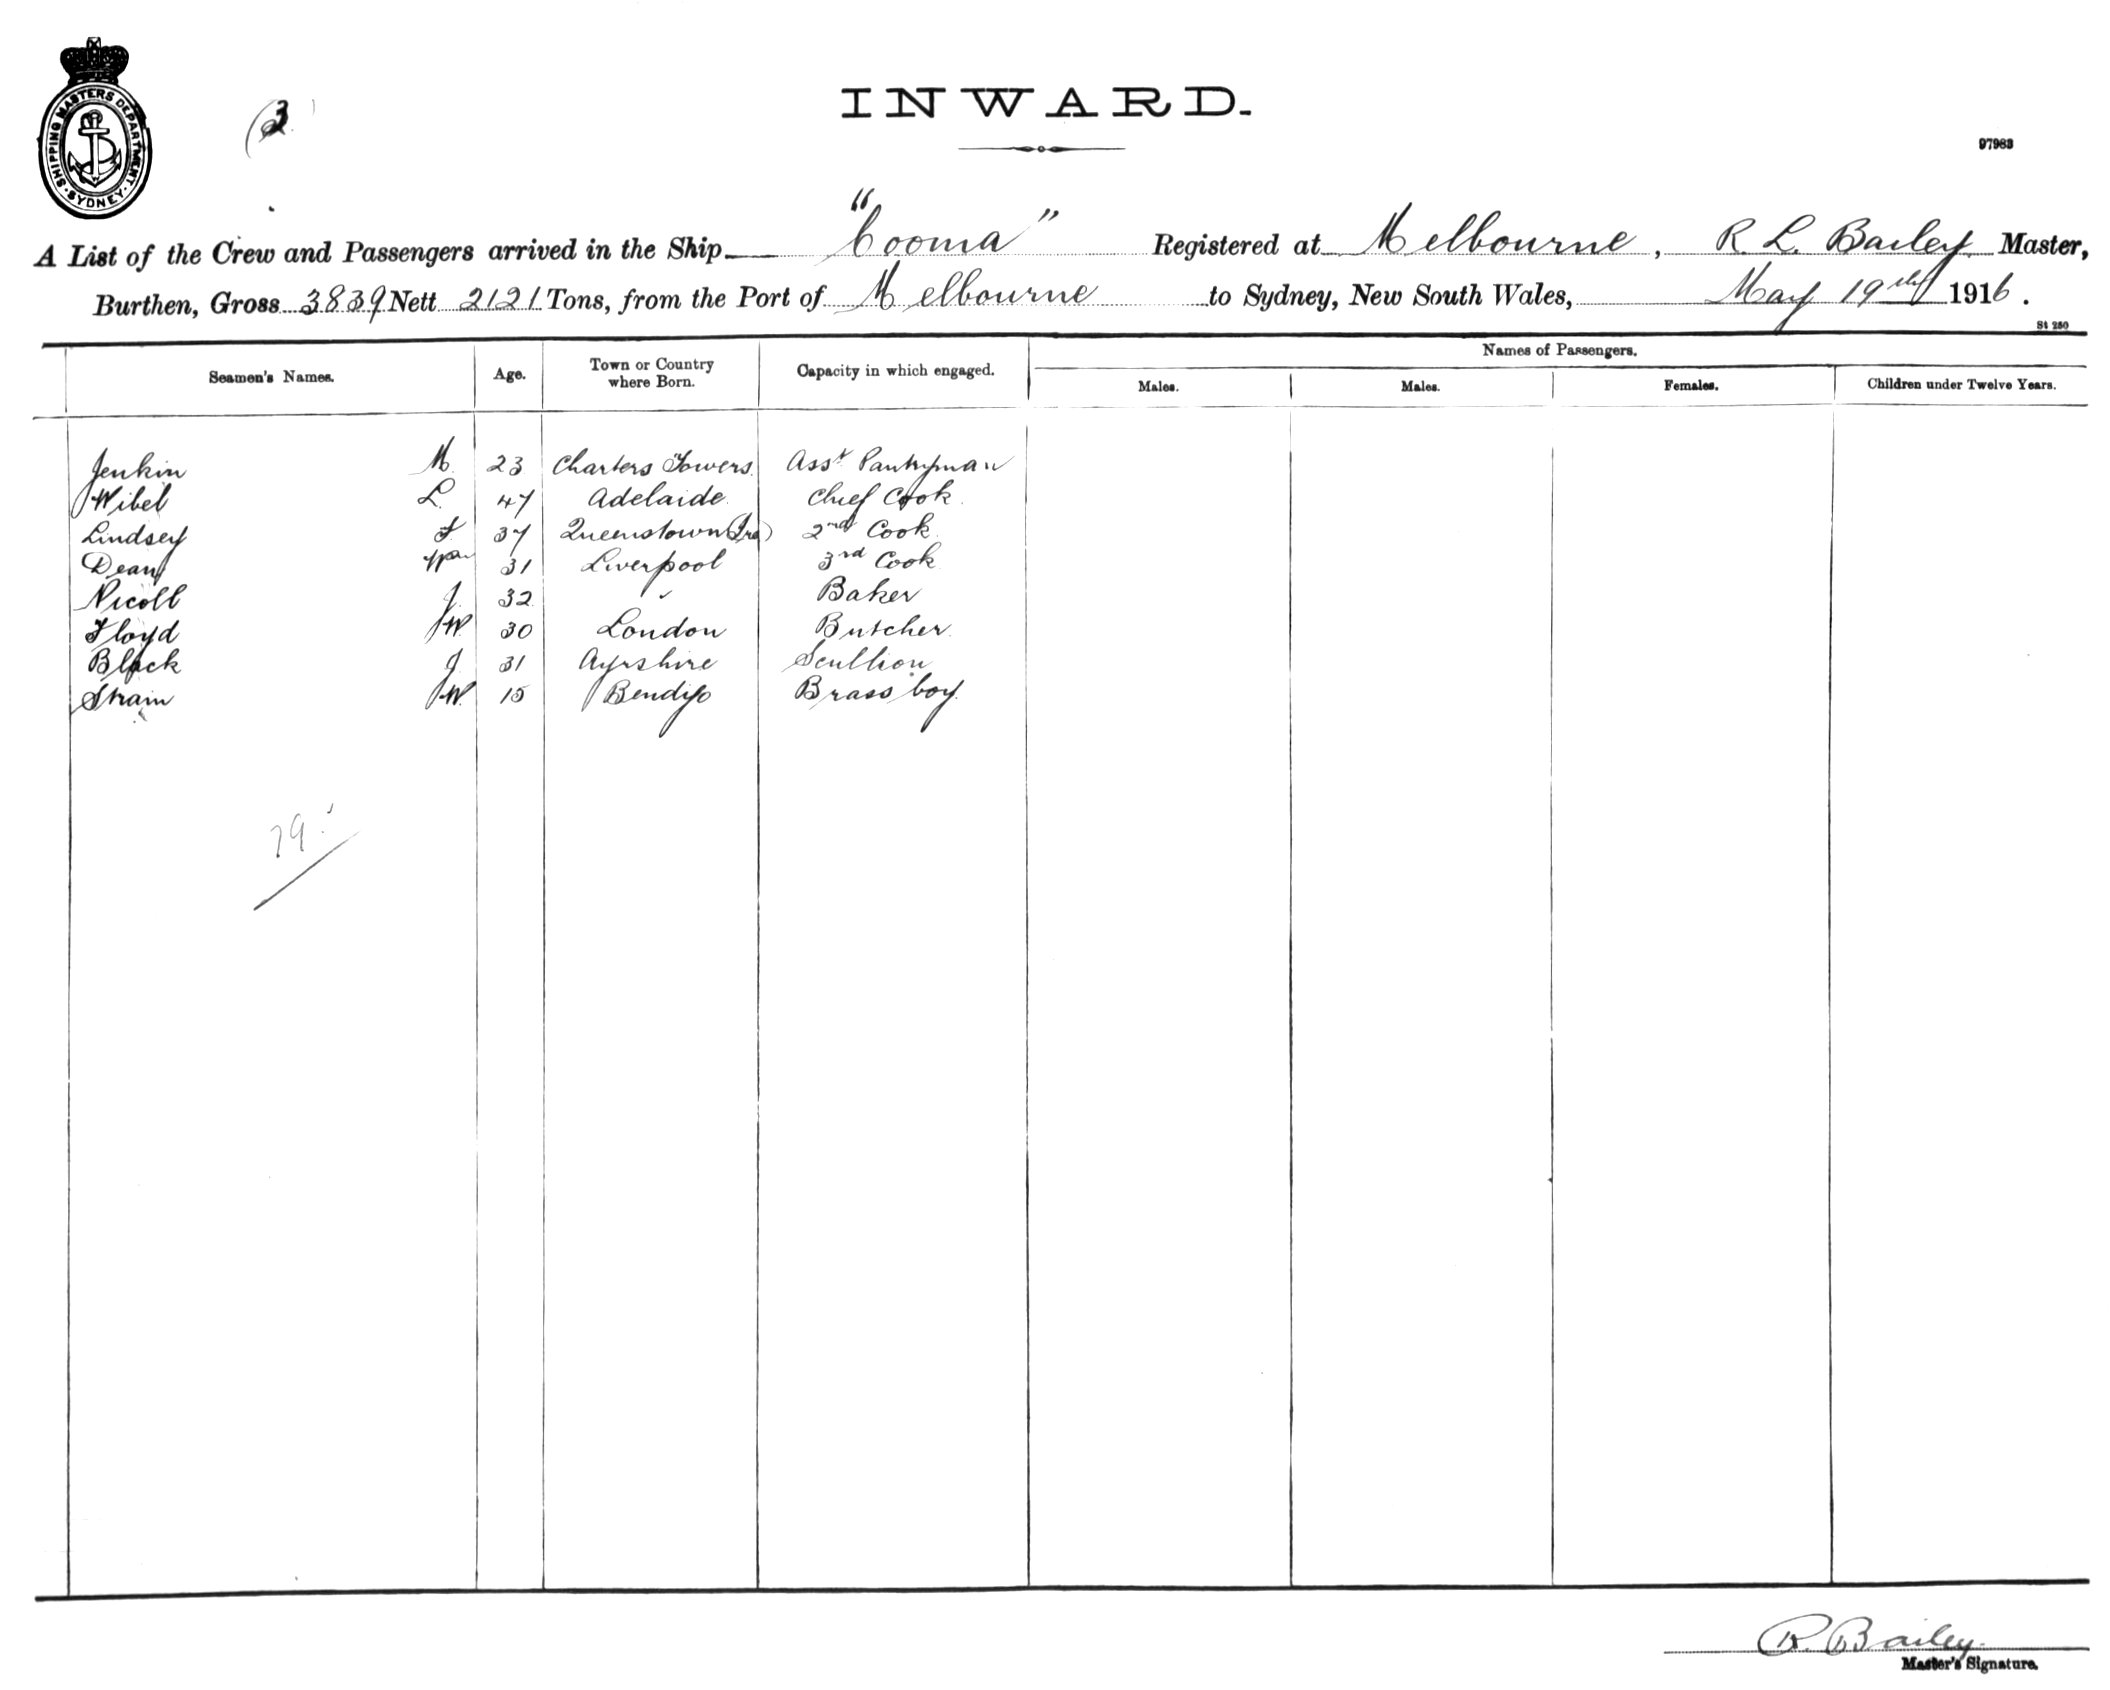 SHIPPING MASTERS DEPARTMENT · SYDNEY ·
(3
INWARD.
97983
A List of the Crew and Passengers arrived in the Ship "Cooma" Registered at Melbourne, R. L. Bailey Master,
Burthen, Gross 3839 Nett 2121 Tons, from the Port of Melbourne to Sydney, New South Wales, May 19th 1916.
St 280
Seamen's Names. Age. Town or Country where Born. Capacity in which engaged. Names of Passengers.
Males. Males. Females. Children under Twelve Years.
Jenkin M. 23 Charters Towers. Asst Pantryman
Wibel L. 47 Adelaide. Chief Cook.
Lindsey F. 37 Queenstown (Ire) 2nd Cook.
Dean 31 Liverpool 3rd Cook
Nicoll J. 32 " Baker
Floyd W. 30 London Butcher.
Black J 31 Ayrshire Scullion
Strain W. 15 Bendigo Brass boy.
79
R. Bailey
Master's Signature.